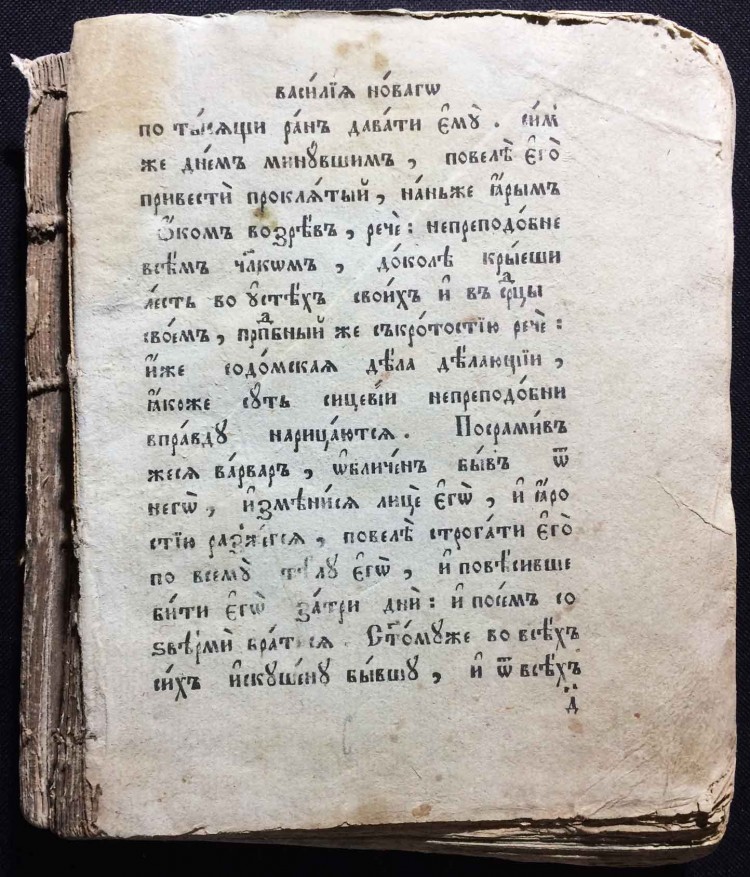 васи́лїѧ но́вагѡ
по ты́сѧщи ра́нъ дава́ти є҆мꙋ̀ . си́мⸯ
же дне́мъ минꙋ́вшимъ , повелѣ̀ є҆го̀
привестѝ проклѧ́тый , на́ньже ꙗ҆́рымъ
ѻ҆́комъ воззрѣ́въ , речѐ : непреподо́бне
всѣ́мъ чл҃кѡмъ , до́колѣ кры́еши
ле́сть во ᲂу҆стѣ́хъ свои́хъ и҆ въ срⷣцы
свое́мъ , прпⷣбный же съкро́тостїю речѐ :
и҆̀же содо́мскаѧ дѣ́ла дѣ́лающїи ,
ꙗ҆́коже сꙋть сицеві́и непреподо́бни
впра́вдꙋ нарица́ютсѧ . Посрами́въ
жесѧ ва́рваръ , ѡ҆бличе́нъ бы́въ ѿ
негѡ̀ , и҆змѣни́сѧ лицѐ є҆гѡ̀ , и҆ ꙗ҆́ро
стїю разже́гсѧ , повелѣ̀ строга́ти є҆го̀
по всемꙋ̀ тѣ́лꙋ є҆гѡ̀ , и҆ повѣ́сивше
би́ти є҆гѡ̀ за́три днѝ : и҆ посе́мъ со
ѕвѣрмѝ бра́тисѧ . Ст҃о́мꙋже во всѣ́хъ
си́хъ и҆скꙋше́нꙋ бы́вшꙋ , и҆ ѿ всѣ́хъ
д҃